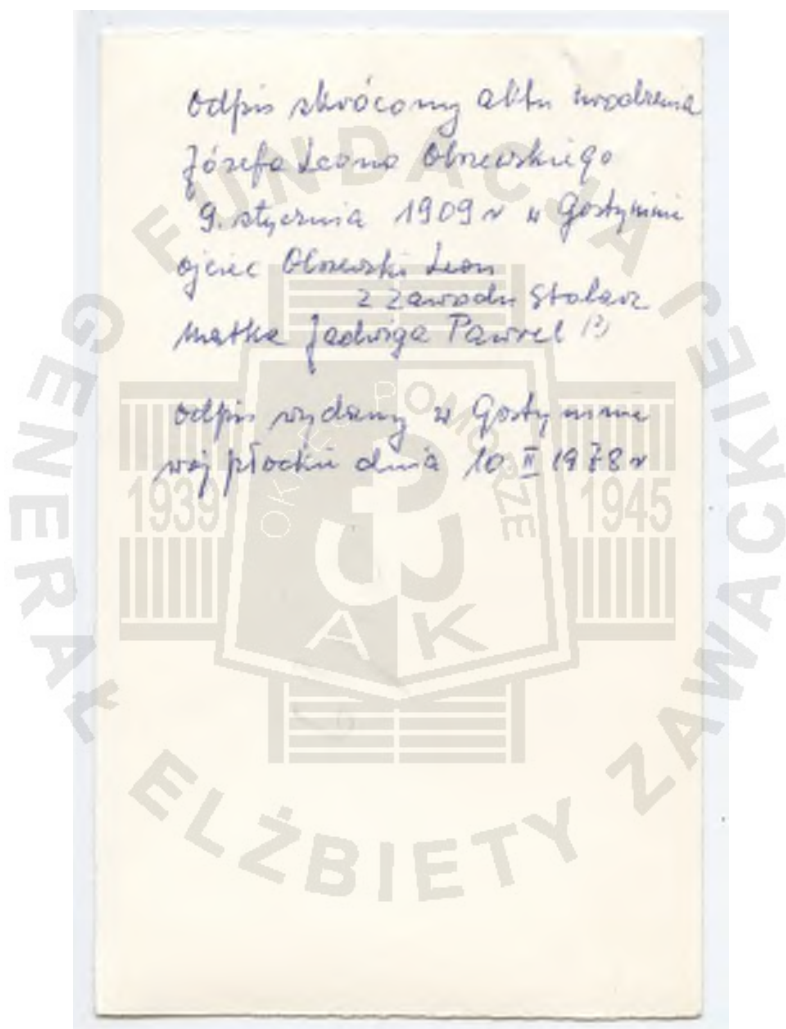 Odpis skrócony aktu urodzenia
Józefa Leona Olszewskiego
9. stycznia 1909 r w Gostyninie
ojciec Olszewski Leon
z zawodu stolarz
matka Jadwiga Pawrel (?)
odpis wydany w Gostyninie
woj płockie dnia 10 II 1978 r
FUNDACJA
GENERAŁ ELŻBIETY ZAWACKIEJ
OKRĘG POMORZE
1939
1945
AK